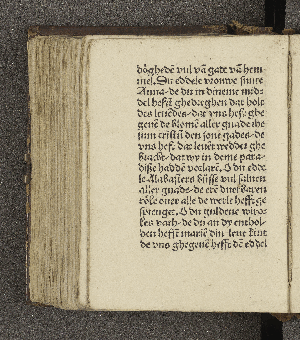 dogheden vul vā gate vā hem
mel. Du eddele vrouwe sunte
Anna de du in dineme mid
del hefst ghedreghen dat holt
des leuēdes dat vns heft ghe
geuē de blomē aller gnade ihe
sum cristū den sone gades de
vns heft dat leuent wedder ghe
bracht dat wy in deme para
diße hadden vorlarē. O du edde
le Alabasters busse vul saluen
aller gnade de ere duerbaren
role ouer alle de werlt hefft ge
sprenget. O du guldene
vath de du an dy enthol
den hefst mariē din leue kint
de vns ghegeuē hefft dē eddel